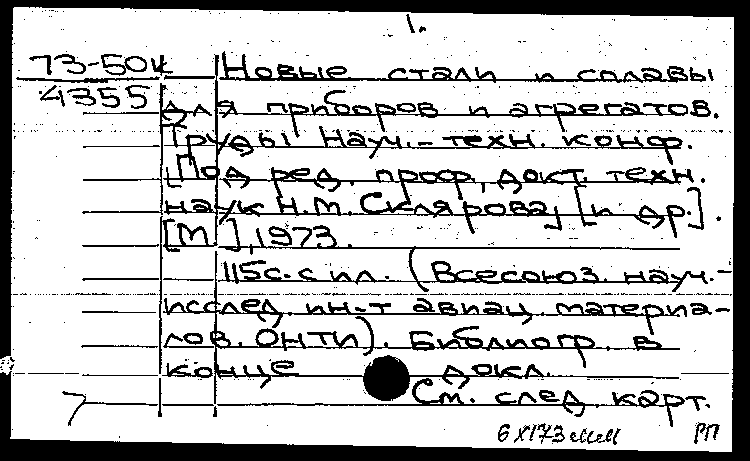 1.
73-50к Новые стали и сплавы
4355 для приборов и агрегатов.
Труды Науч.-техн. конф.
[Под ред. проф., докт. техн.
наук Н.М. Склярова] [и др.].
[М.], 1973.
115с. с ил. (Всесоюз. науч.-
исслед. ин-т авиац. материа-
лов. ОНТИ). Библиогр. в
конце докл.
См. след. карт.
7
РП